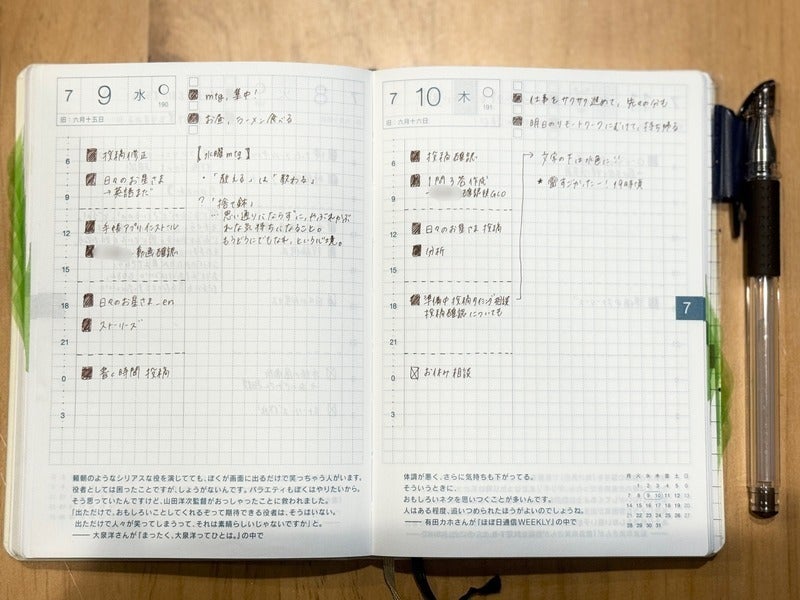 7 9 水 190
旧:六月十五日
mtg, 集中!
お昼, ラーメン食べる
6 投稿修正
日々のお星さま
9 →英語まだ
12 手帳アプリインストール
動画確認
15
18 日々のお星さま_en
ストーリーズ
21
0 書く時間 投稿
3
【水曜mtg】
・「教える」は「教わる」
?「捨て鉢」
…思い通りにならずに、やぶれかぶ
れな気持ちになること。
もうどうにでもなれ、という心境。
頼朝のようなシリアスな役を演じてても、ぼくが画面に出るだけで笑っちゃう人がいます。
役者としては困ったことですが、しょうがないんです。バラエティもぼくはやりたいから。
そう思っていたんですけど、山田洋次監督がおっしゃったことに救われました。
「出ただけで、おもしろいことしてくれるぞって期待できる役者は、そうはいない。
出ただけで人々が笑ってしまうって、それは素晴らしいじゃないですか」と。
―― 大泉洋さんが『まったく、大泉洋ってひとは。』の中で
7 10 木 191
旧:六月十六日
仕事をサクサク進めて、先々の分も
明日のリモートワークにむけて、持ち帰る
6 投稿確認
1問3答作成
9 確認後GO
12 日々のお星さま 投稿
分析
15
18 準備中 投稿タイミング相談
投稿確認についても
21
0 お休み相談
3
文字の下は水色に!!
★ 雷すごかったー! 19時頃
7
体調が悪く、さらに気持ちも下がってる。
そういうときに、
おもしろいネタを思いつくことが多いんです。
人はある程度、追いつめられたほうがよいのでしょうね。
―― 有田カホさんが「ほぼ日通信WEEKLY」の中で
月 火 水 木 金 土 日
1 2 3 4 5 6
7 8 9 10 11 12 13
14 15 16 17 18 19 20
21 22 23 24 25 26 27
28 29 30 31